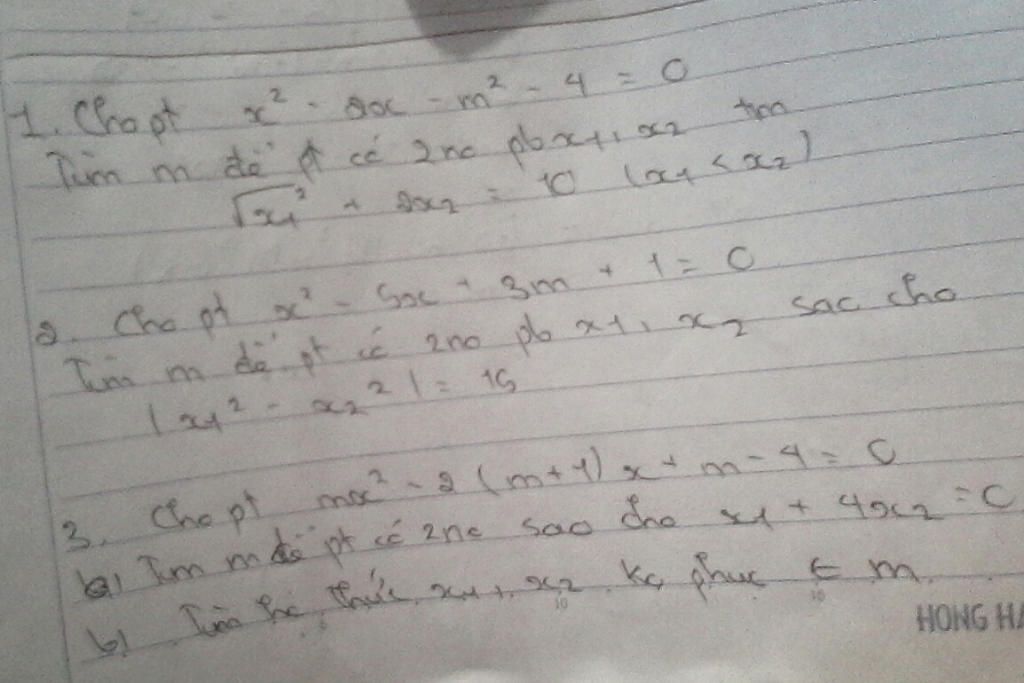 1. Cho pt x² - 2x - m² - 4 = 0
Tìm m để pt có 2no pb x1, x2 tm
√x1² + 2x2 = 10 (x1 < x2)
2. Cho pt x² - 5x + 3m + 1 = 0
Tìm m để pt có 2no pb x1, x2 sao cho
|x1² - x2²| = 15
3. Cho pt mx² - 2(m+1)x + m - 4 = 0
a) Tìm m để pt có 2no sao cho x1 + 4x2 = 0
b) Tìm hệ thức x1, x2 ko phuc € m.
HONG HA